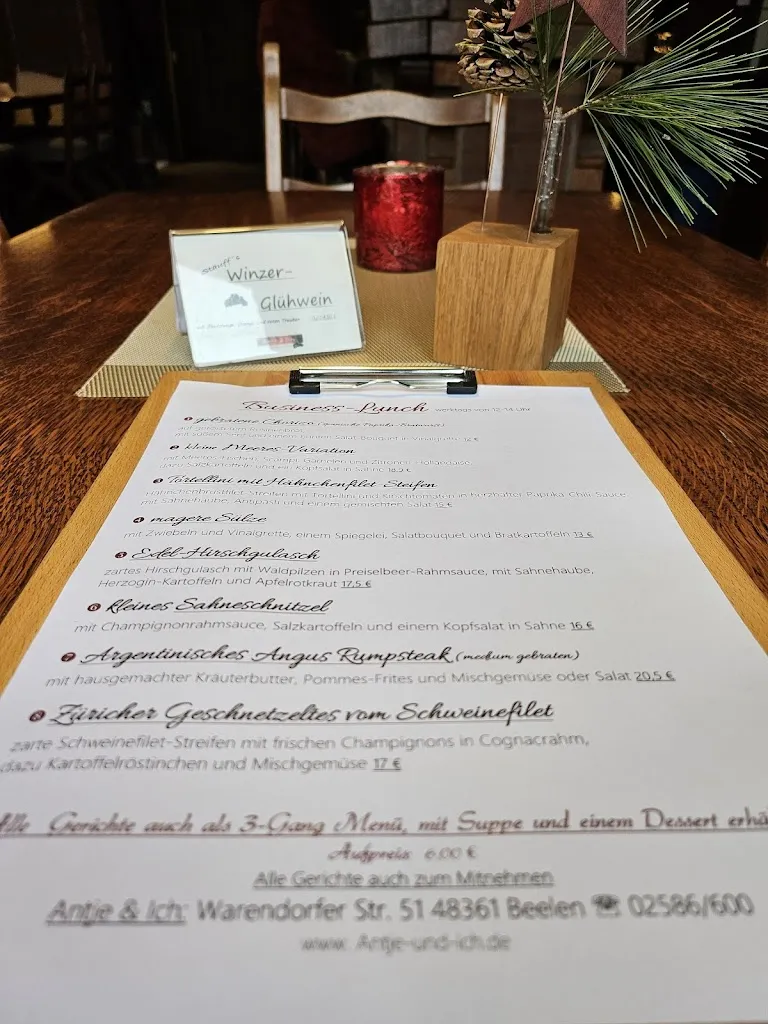 Stauff's
Winzer-
Glühwein
Business-Lunch werktags von 12-14 Uhr
1 gebratene Chorizo (spanische Paprika-Bratwurst)
2 kleine Meeres-Variation
dazu Salzkartoffeln und ein Kopfsalat in Sahne 18,5 €
3 Tortellini mit Hähnchenfilet-Steifen
Hähnchenbrustfilet-Streifen mit Tortellini und Kirschtomaten in herzhafter Paprika-Chili-Sauce
mit Sahnehaube, Antipasti und einem gemischten Salat 15 €
4 magere Sülze
mit Zwiebeln und Vinaigrette, einem Spiegelei, Salatbouquet und Bratkartoffeln 13 €
5 Edel-Hirschgulasch
zartes Hirschgulasch mit Waldpilzen in Preiselbeer-Rahmsauce, mit Sahnehaube,
Herzogin-Kartoffeln und Apfelrotkraut 17,5 €
6 kleines Sahneschnitzel
mit Champignonrahmsauce, Salzkartoffeln und einem Kopfsalat in Sahne 16 €
7 Argentinisches Angus Rumpsteak (medium gebraten)
mit hausgemachter Kräuterbutter, Pommes-Frites und Mischgemüse oder Salat 20,5 €
8 Züricher Geschnetzeltes vom Schweinefilet
zarte Schweinefilet-Streifen mit frischen Champignons in Cognacrahm,
dazu Kartoffelröstinchen und Mischgemüse 17 €
Alle Gerichte auch als 3-Gang Menü, mit Suppe und einem Dessert erhä
Aufpreis 6,00 €
Alle Gerichte auch zum Mitnehmen
Antje & Ich: Warendorfer Str. 51 48361 Beelen ☎ 02586/600
www. Antje-und-ich.de